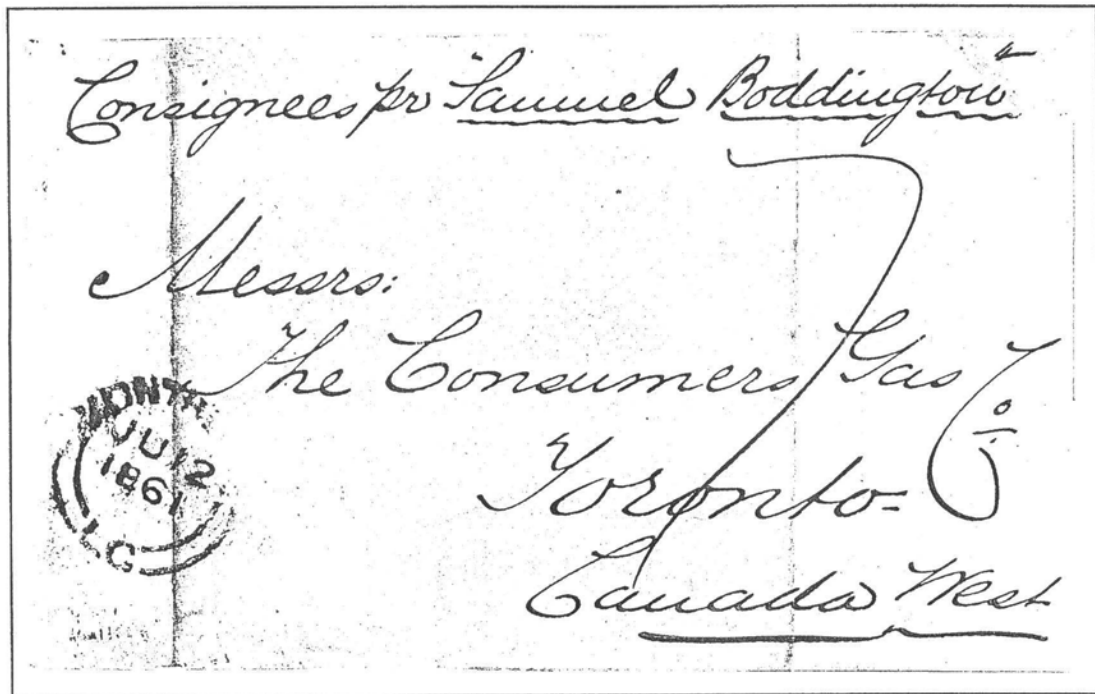 Consignees pr "Samuel Boddington"
7
Messrs:
The Consumers Gas Co
Toronto-
Canada West
JU 12
1861